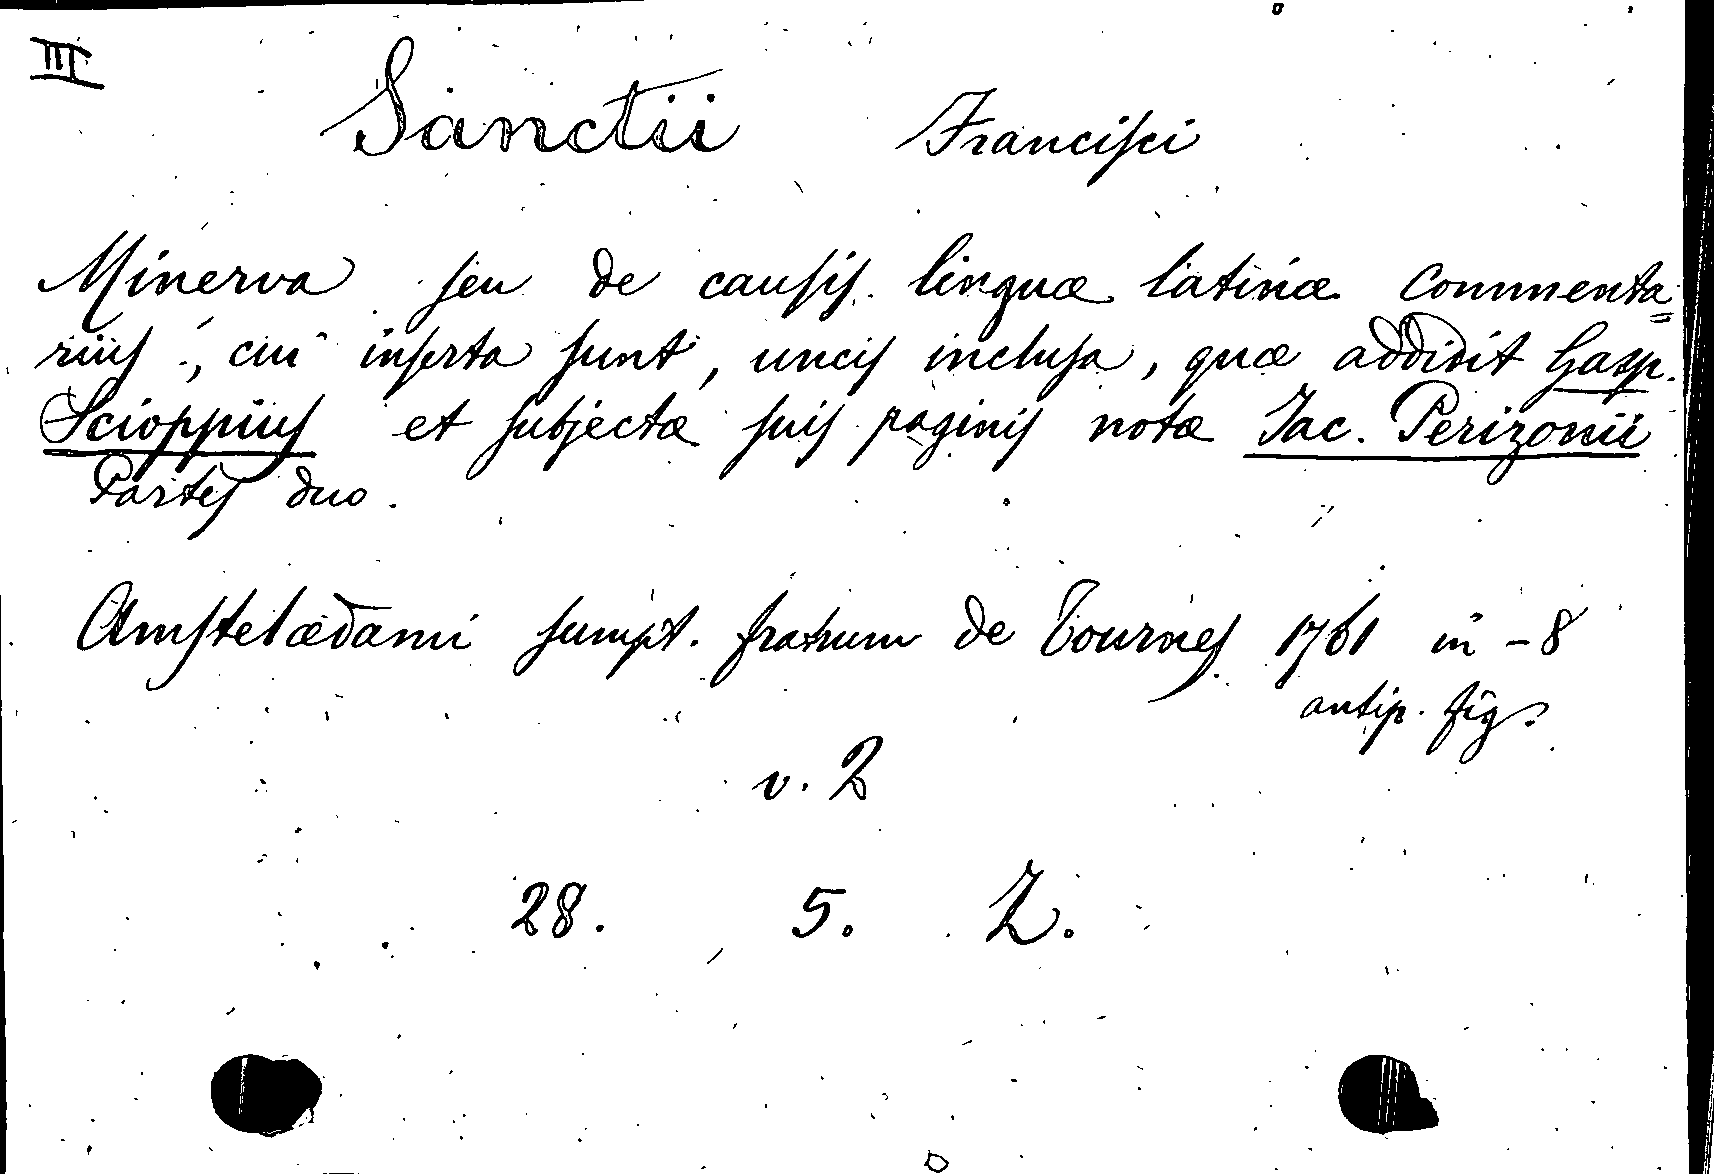 III
Sanctii Francisci
Minerva seu de causis linguæ latinæ commenta=
rius, cui inserta sunt, uncis inclusa, quæ addidit Gasp.
Scioppius et subjectæ suis paginis notæ Jac. Perizonii
Partes duo.
Amstelædami sumpt. fratrum de Tournes 1761 in-8
antip. fig.
v. 2
28. 5. Z.